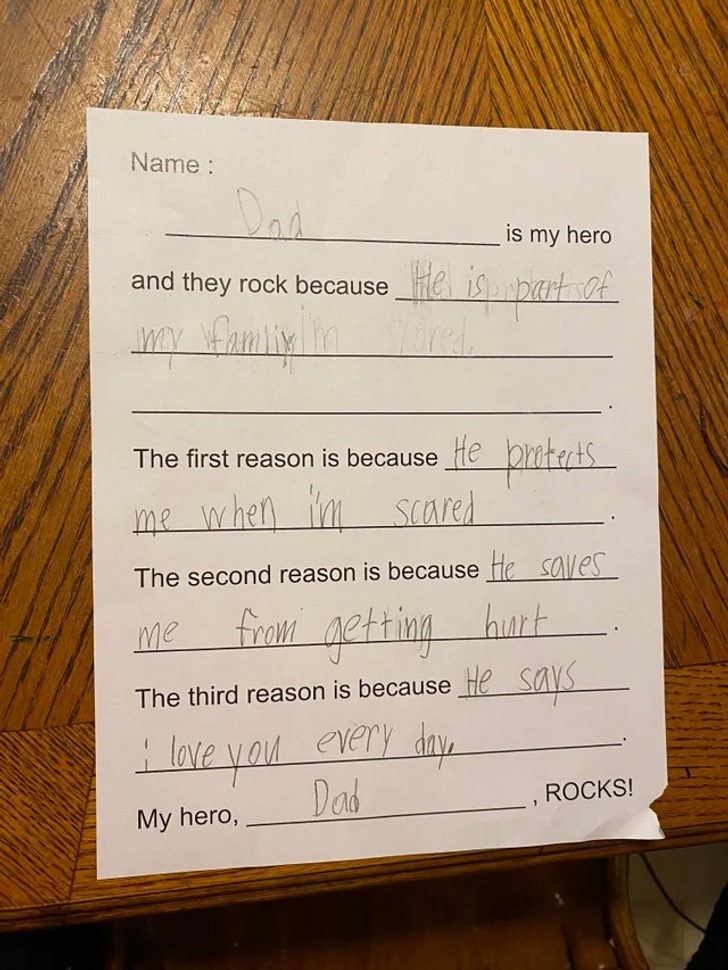 Name :
Dad is my hero
and they rock because He is part of
my famliy
.
The first reason is because He protects
me when i'm scared .
The second reason is because He saves
me from getting hurt .
The third reason is because He says
i love you every day. .
My hero, Dad , ROCKS!